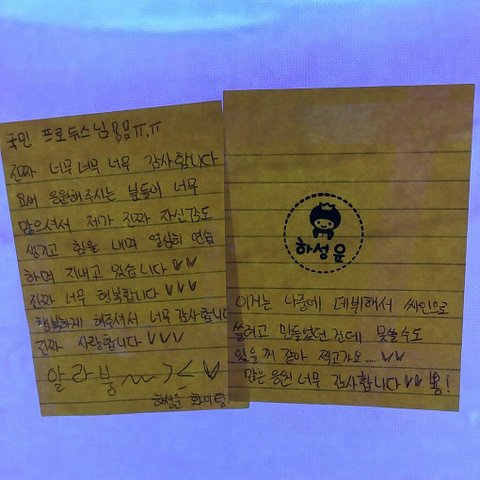 국민 프로듀스님 몸몸 ㅠ.ㅠ
진짜 너무 너무 너무 감사합니다
요새 응원해주시는 분들이 너무
많으셔서 제가 진짜 자신감도
생기고 힘을 내며 열심히 연습
하며 지내고 있습니다 ♡♡
진짜 너무 행복합니다 ♡♡♡
행복하게 해주셔서 너무 감사합니다
진짜 사랑합니다 ♡♡♡
알라붕~~ >< ♡
하성운 화이팅
하성운
이거는 나중에 데뷔해서 싸인으로
쓸려고 만들었던 건데 못쓸수도
있을꺼 같아 찍고가요.... ♡♡
많은 응원 너무 감사합니다 ♡♡ 뿅!